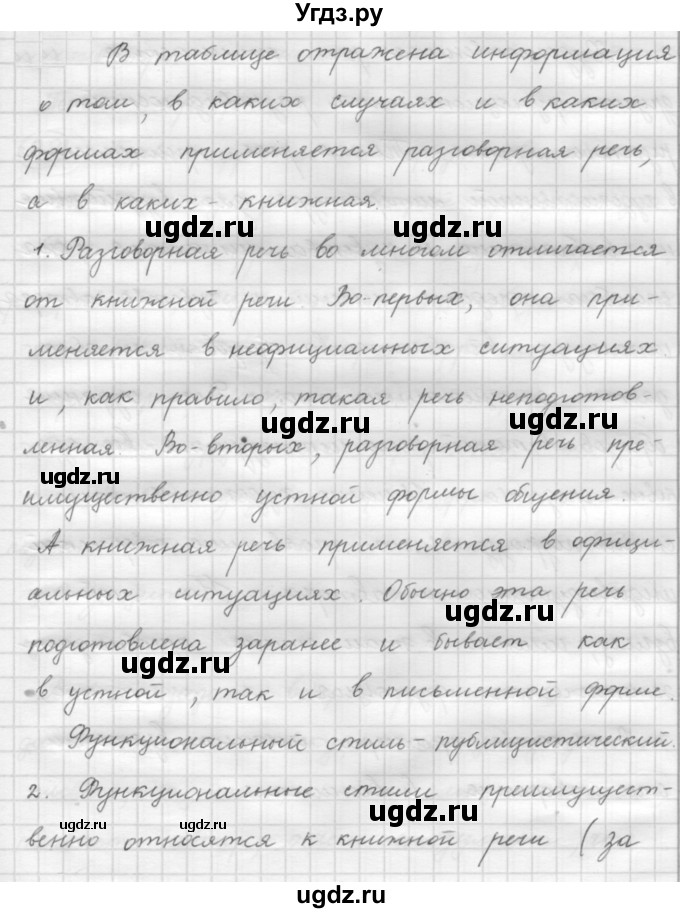 Угдз.ру
В таблице отражена информация
о том, в каких случаях и в каких
формах применяется разговорная речь,
а в каких - книжная.
ugdz.ru ugdz.ru
1. Разговорная речь во многом отличается
от книжной речи. Во-первых, она при-
меняется в неофициальных ситуациях
и, как правило, такая речь неподготов-
ugdz.ru ugdz.ru
ленная. Во-вторых, разговорная речь пре-
ugdz.ru
имущественно устной формы общения.
А книжная речь применяется в офици-
альных ситуациях. Обычно эта речь
ugdz.ru
подготовлена заранее и бывает как
ugdz.ru
в устной, так и в письменной форме.
Функциональный стиль - публицистический.
2. Функциональные стили преимущест-
ugdz.ru ugdz.ru
венно относятся к книжной речи (за
ugdz.ru